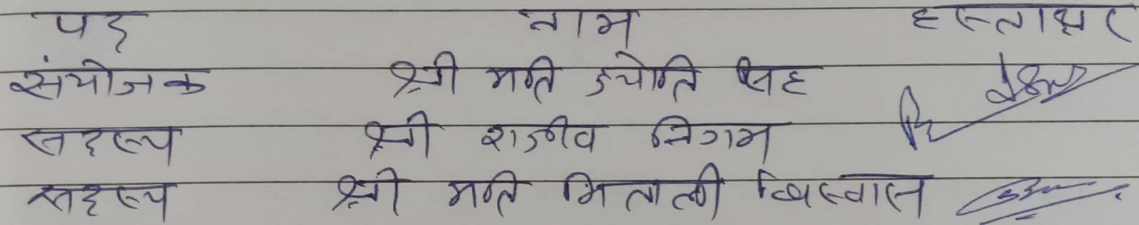 पद नाम हस्ताक्षर
संयोजक श्री मति ज्योति सिंह
सदस्य श्री राजीव निगम
सदस्य श्री मति मिताली बिस्वास